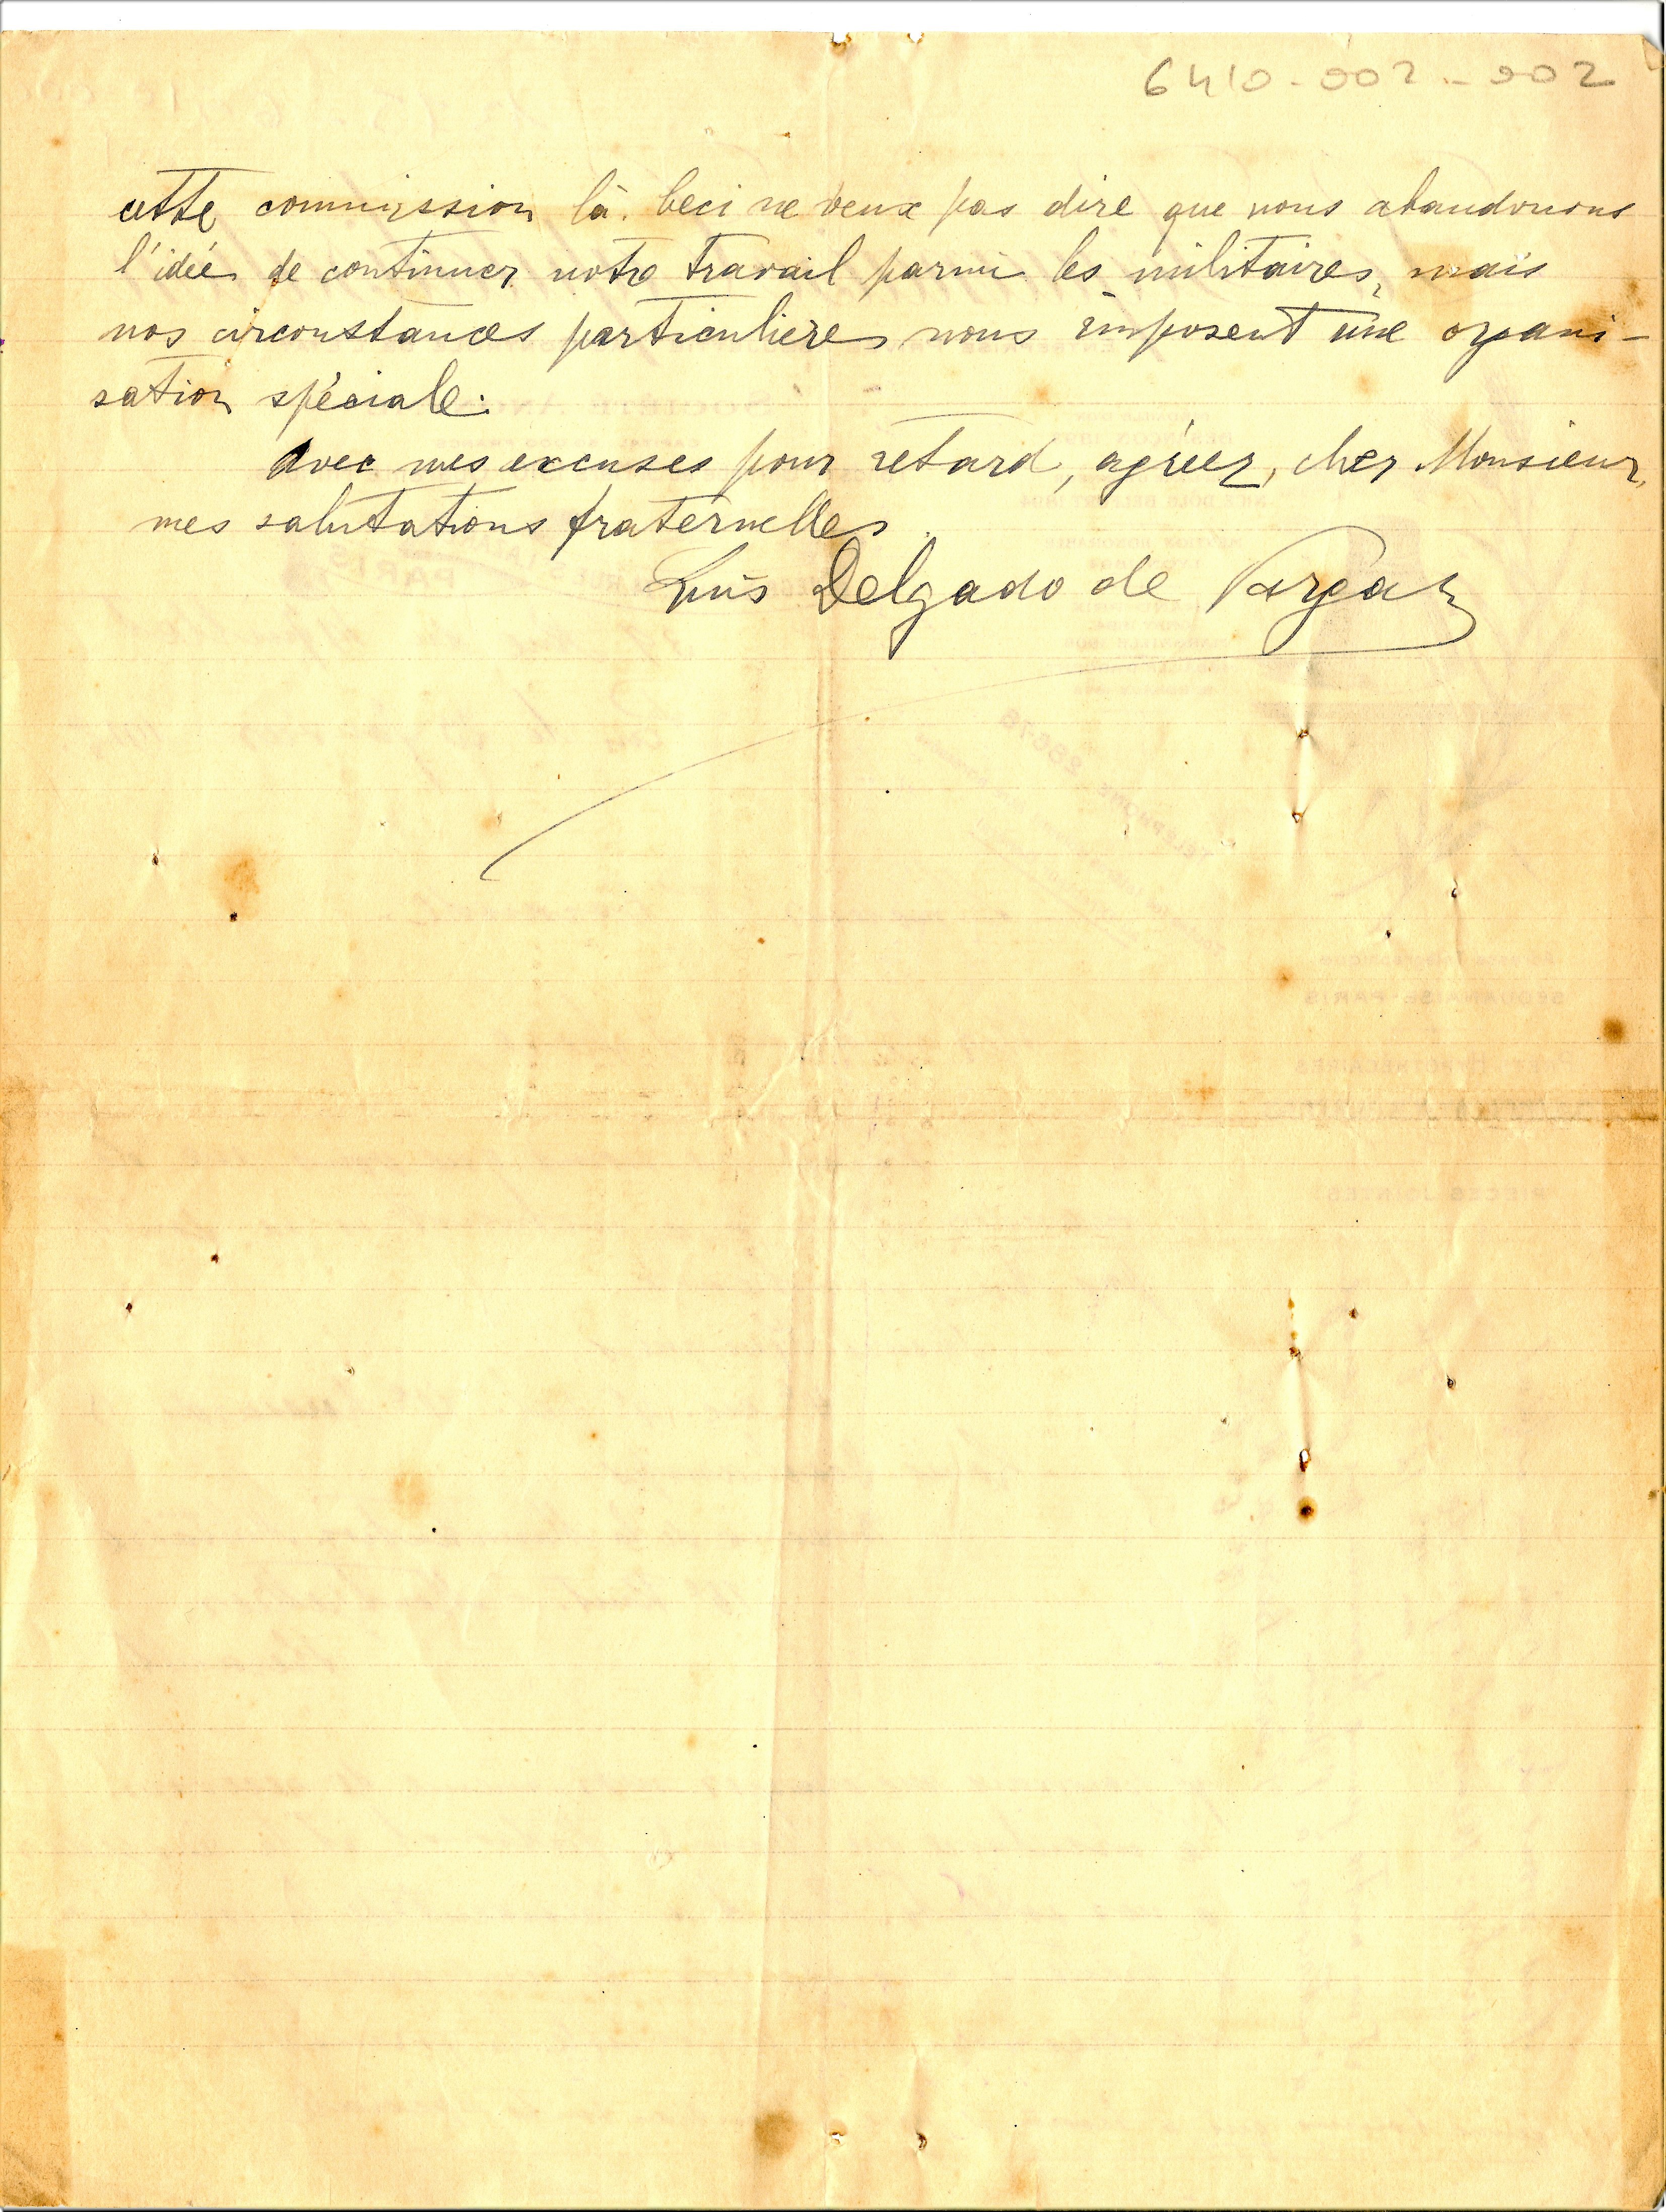 6410-002-002
cette commission là. Ceci ne veux pas dire que nous abandonons
l'idée de continuer notre travail parmi les militaires, mais
nos circonstances particulieres nous imposent une organi-
sation spéciale.
Avec mes excuses pour retard, agréez, cher Monsieur,
mes salutations fraternelles.
Luis Delgado de Vargas